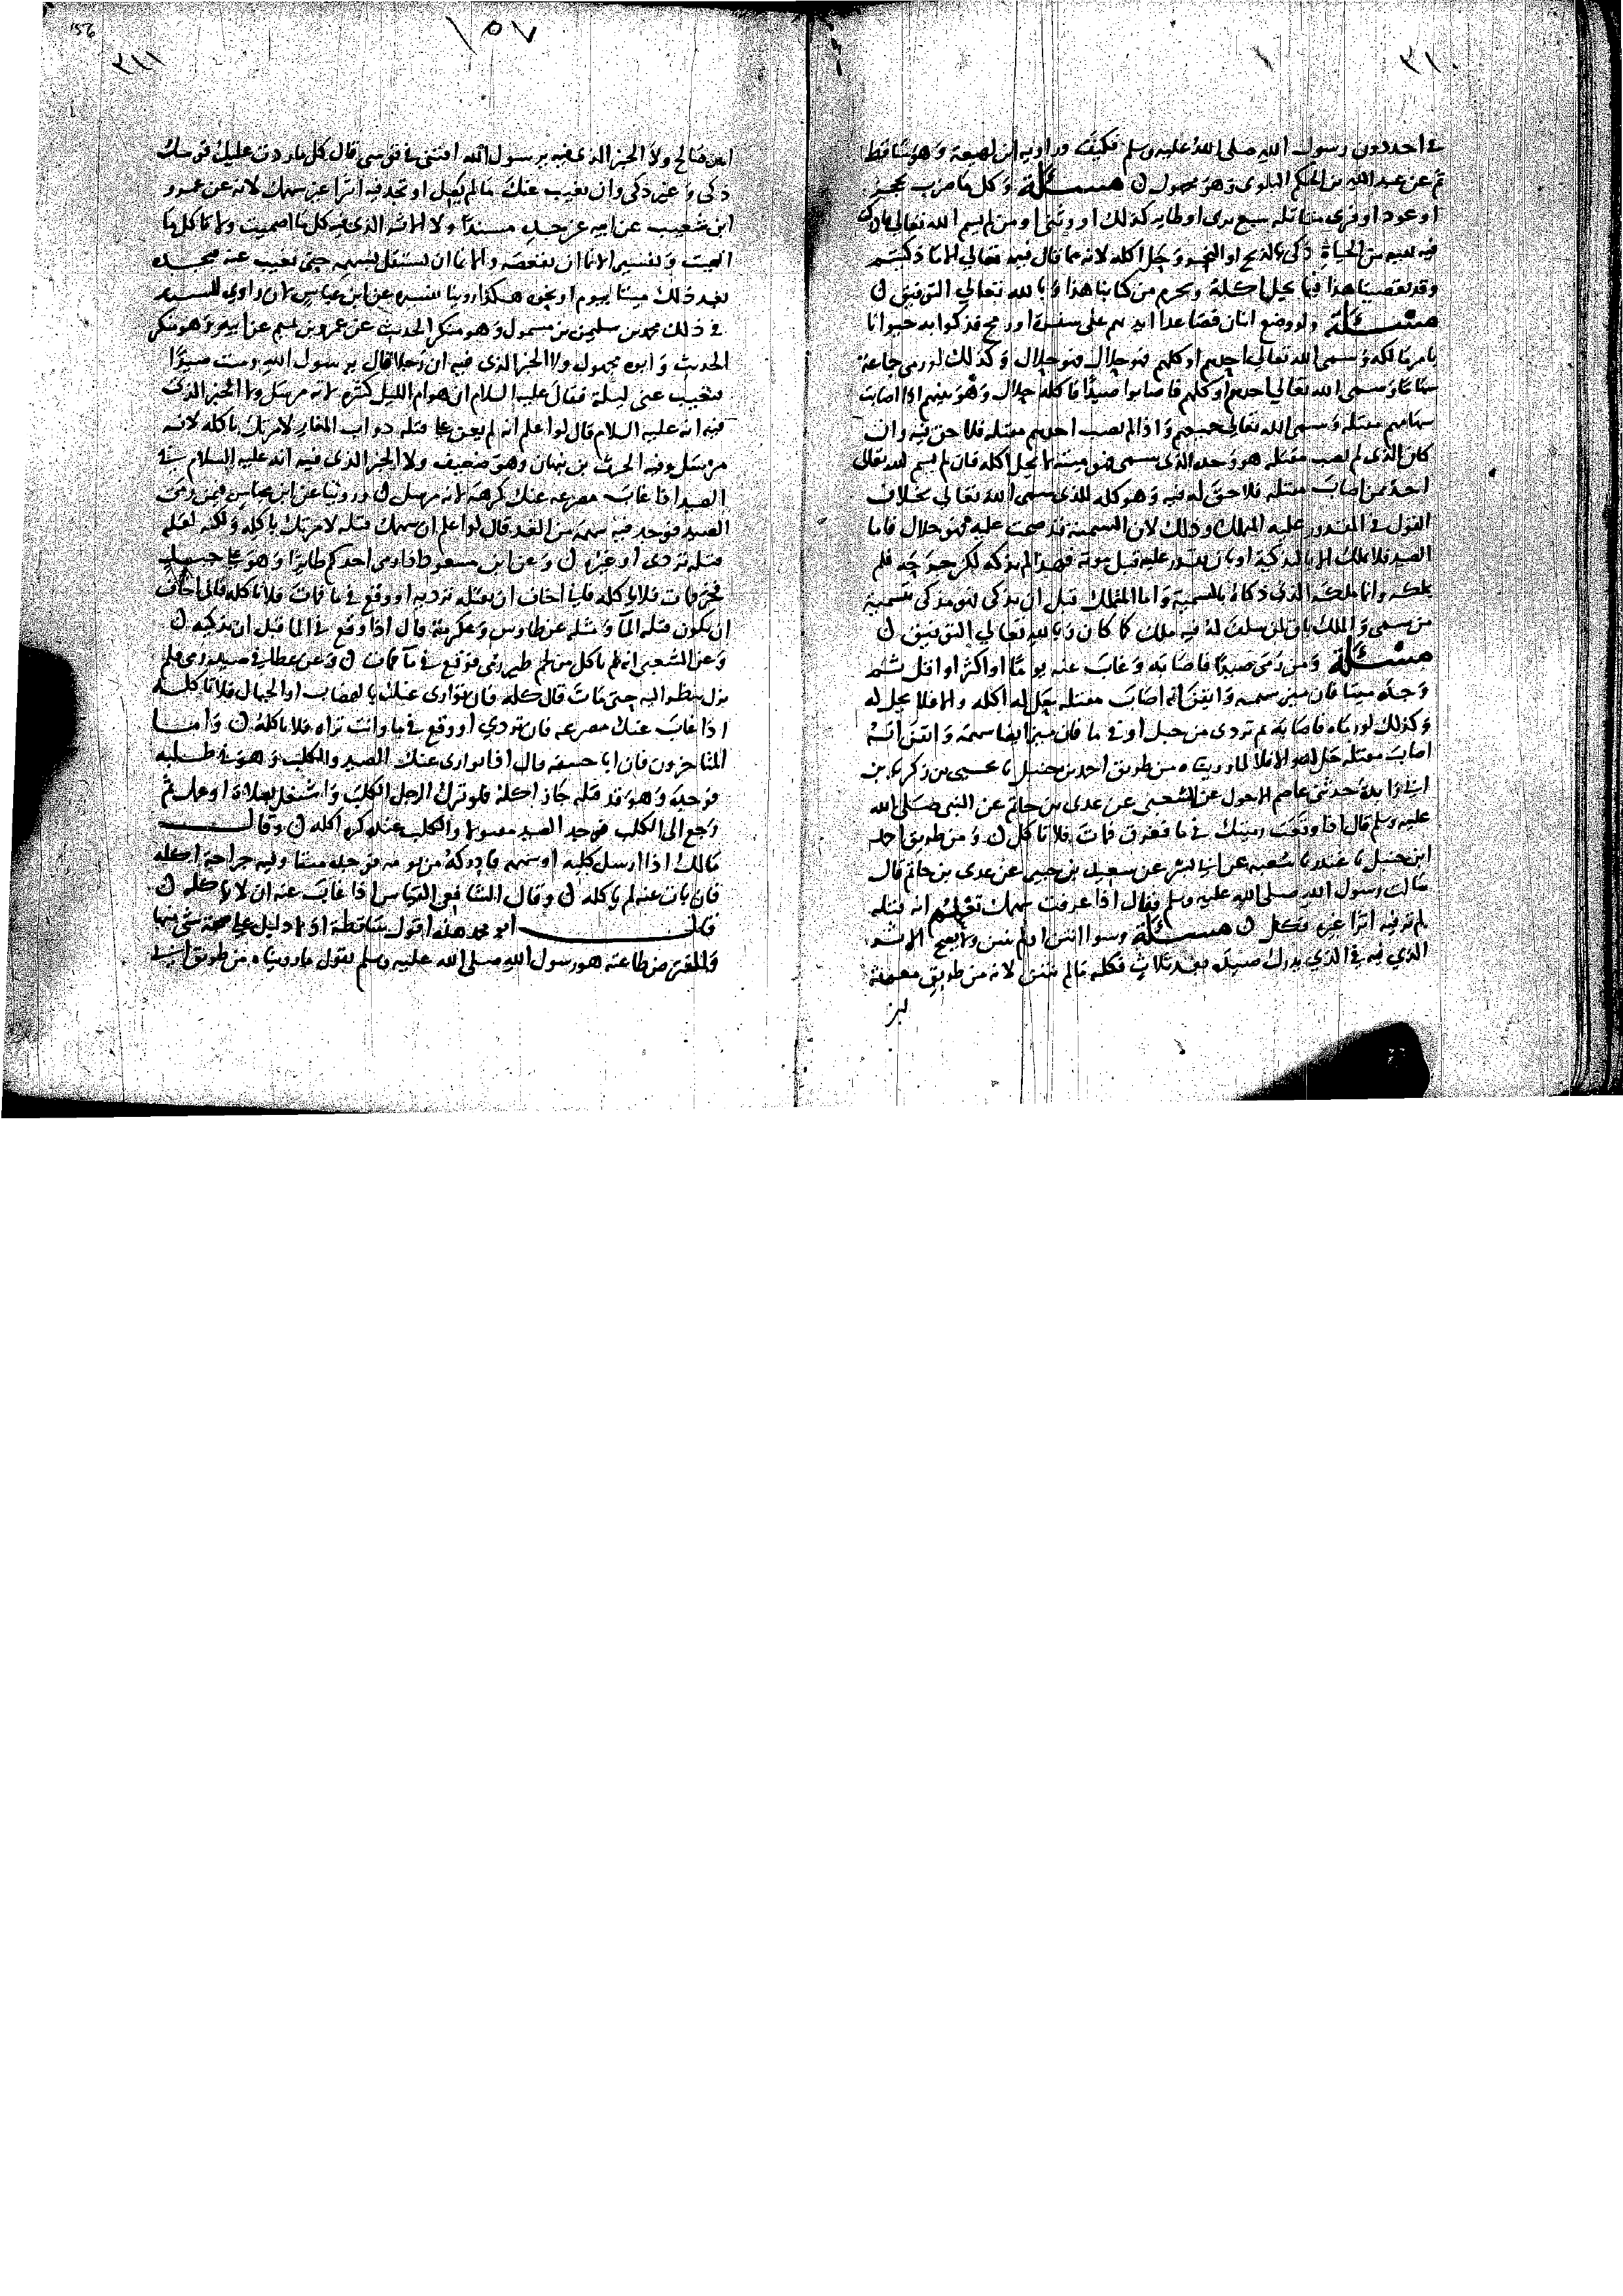 ٣١٠
في احد دون رسول الله صلى الله عليه وسلم فكيف وراويه ابن لهيعة وهو ساقط
ثم عن عبد الله بن الحكم البلوى وهو مجهول ن مسئلة وكل ما ضرب بحجر
او عود او فرى مقاتله سبع برى او طاير كذلك او وثنى او من لم يسم الله تعالى فادرك
فيه بقيه من الحياة ذكى بالذبح او النحر وحل اكله لانه مما قال فيه تعالى الا ما ذكيتم
وقد تقصينا هذا فيما يحل اكله ويحرم من كتابنا هذا وبالله تعالى التوفيق ن
مسئلة ولو وضع اثنان فصاعدا ايديهم على شفرة او رمح فذكوا به حيوانا
بامر مالكه وسمى الله تعالى احدهم او كلهم فهو حلال وكذلك لو رمى جماعة
سهاما وسمى الله تعالى احدهم او كلهم فاصابوا صيدا فاكله حلال وهو بينهم اذا اصابت
سهامهم مقتله وسمى الله تعالى جميعهم واذا لم يصب احدهم مقتله فلا حق فيه وان
كان الذى لم يصب مقتله هو وحده الذى سمى فهو ميتة لا يحل اكله فان لم يسم الله تعالى
احد ممن اصاب مقتله فلا حق له فيه وهو كله للذى سمى الله تعالى بخلاف
القول في المقدور عليه المتملك وذلك لان التسمية قد صحت عليه فهو حلال فاما
الصيد فلا يملك الا بالتذكية او بان يقدر عليه قبل موته فهذا لم يذكه لكن جرحه فلم
يملكه وانما ملكه الذى ذكاه بالتسمية واما المتملك قبل ان يذكى فهو مذكى بتسمية
من سمى والملك باق لمن سلف له فيه ملك كما كان وبالله تعالى التوفيق ن
مسئلة ومن رمى صيدا فاصابه وغاب عنه يوما او اكثر او اقل ثم
وجده ميتا فان ميز سهمه وايقن انه اصاب مقتله حل له اكله والا فلا يحل له
وكذلك لو رماه فاصابه ثم تردى من جبل او في ما فان ميز ايضا سهمه وايقن انه
اصاب مقتله حل له والا فلا لما رويناه من طريق احمد بن حنبل نا يحيى بن زكريا بن
ابي زايدة حدثني عاصم الاحول عن الشعبى عن عدى بن حاتم عن النبى صلى الله
عليه وسلم قال اذا وقعت رميتك في ما فغرق فمات فلا تاكل ن ومن طريق احمد
ابن حنبل نا غندر نا شعبة عن ابي بشر عن سعيد بن جبير عن عدى بن حاتم قال
سالت رسول الله صلى الله عليه وسلم فقال اذا عرفت سهمك تعلم انه قتله
لم تر فيه اثرا غيره فكل ن مسئلة وسوا انتن او لم ينتن ولا يصح الاثر
الذي فيه في الذي يدرك صيده بعد ثلاث فكله ما لم ينتن لانه من طريق معوية
ابن
156
١٥٧
٣١١
ابن صالح ولا الخبر الذى فيه يرسول الله افتنى في قوسى قال كل ما ردت عليك قوسك
ذكى وغير ذكى وان تغيب عنك ما لم يصل او تجد فيه اثرا غير سهمك لانه عن عمرو
ابن شعيب عن ابيه عن جده مسندا ولا الاثر الذى فيه كل ما اصميت ولا تاكل ما
انميت وتفسير الاصما ان تقعصه والانما ان يستقل بسهمه حتى تغيب عنه فتجده
بعد ذلك ميتا بيوم او نحوه هكذا روينا تفسيره عن ابن عباس لان راوي المسند
في ذلك محمد بن سليمن بن مسمول وهو منكر الحديث عن عمرو بن تميم عن ابيه وهو منكر
الحديث وابوه مجهول ولا الخبر الذى فيه ان رجلا قال يرسول الله رميت صيدا
فتغيب عنى ليلة فقال عليه السلام ان هوام الليل كثيره لانه مرسل ولا الخبر الذى
فيه انه عليه السلام قال لو اعلم انه لم يعن على قتله دواب الغار لامرتك باكله لانه
مرسل وفيه الحرث بن نبهان وهو ضعيف ولا الخبر الذى فيه انه عليه السلام في
الصيد اذا غاب مصرعه عنك كرهه لانه مرسل ن وروينا عن ابن عباس فيمن رمى
الصيد فوجد فيه سهمه من الغد قال لو اعلم ان سهمك قتله لامرتك باكله ولكنه لعله
قتله تردى او غيره ن وعن ابن مسعود اذا رمى احدكم طايرا وهو على جبل
فخر فمات فلا ياكله فاني اخاف ان يقتله ترديه او وقع في ما فمات فلا تاكله فاني اخاف
ان يكون قتله الما ومثله عن طاوس وعكرمة قال اذا وقع في الما قبل ان تذكيه ن
وعن الشعبى انه لم ياكل من لحم طير رمى فوقع في ما فمات ن وعن عطا في صيد رمى فلم
يزل ينظر اليه حتى مات قال كله فان توارى عنك بالهضاب او الجبال فلا تاكله
اذا غاب عنك مصرعه فان تردي او وقع في ما وانت تراه فلا تاكله ن واما
المتاخرون فان ابا حنيفة قال اذا توارى عنك الصيد والكلب وهو في طلبه
فوجده وهو قد قتله جاز اكله فلو ترك الرجل الكلب واشتغل بصلاة او عمل ثم
رجع الى الكلب فوجد الصيد مقتولا والكلب عنده كره اكله ن وقال
مالك اذا ارسل كلبه او سهمه فادركه من يومه فوجده ميتا وفيه جراحة اكله
فان بات عنه لم ياكله ن وقال الشافعى القياس اذا غاب عنه ان لا ياكله ن
قال ابو محمد هذه اقوال ساقطة اذ لا دليل على صحة شى منها
والمفترض طاعته هو رسول الله صلى الله عليه وسلم بقول ما رويناه من طريق ابي